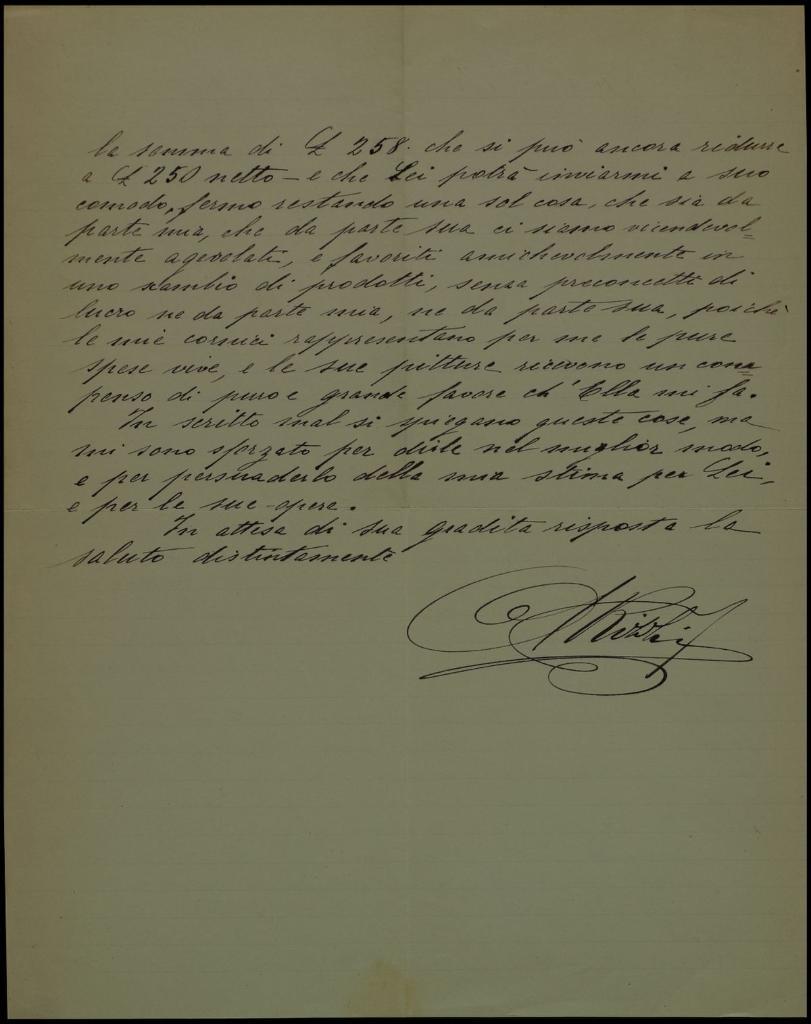 la somma di £ 258. che si può ancora ridurre
a £ 250 netto – e che Lei potrà inviarmi a suo
comodo, fermo restando una sol cosa, che sia da
parte mia, che da parte sua ci siamo vicendevol=
mente agevolati, e favoriti amichevolmente in
uno scambio di prodotti, senza preconcetti di
lucro ne da parte mia, ne da parte sua, poichè
le mie cornici rappresentano per me le pure
spese vive, e le sue pitture ricevono un com=
penso di puro e grande favore ch' Ella mi fa.
In scritto mal si spiegano queste cose, ma
mi sono sforzato per dirle nel miglior modo,
e per persuaderlo della mia stima per Lei,
e per le sue opere.
In attesa di sua gradita risposta la
saluto distintamente